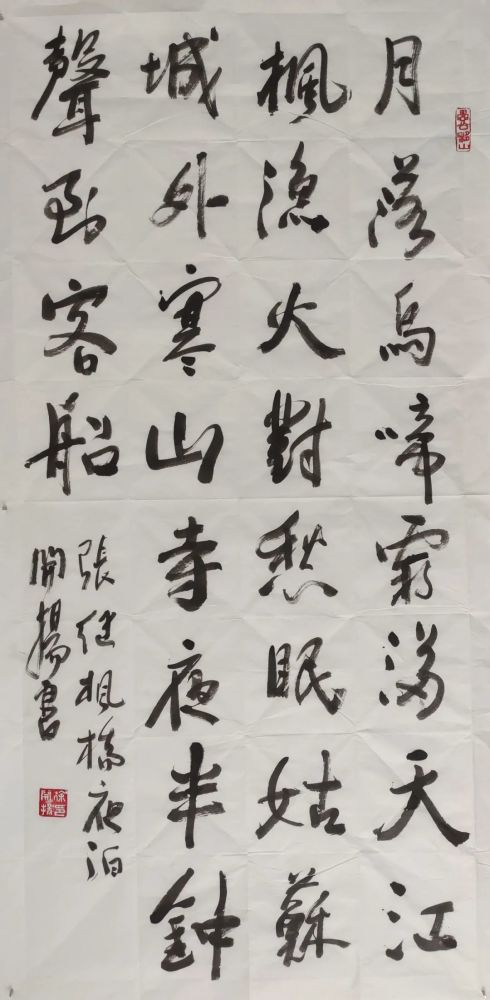 月落烏啼霜滿天江
楓漁火對愁眠姑蘇
城外寒山寺夜半鐘
聲到客船
張继楓橋夜泊
開楊書